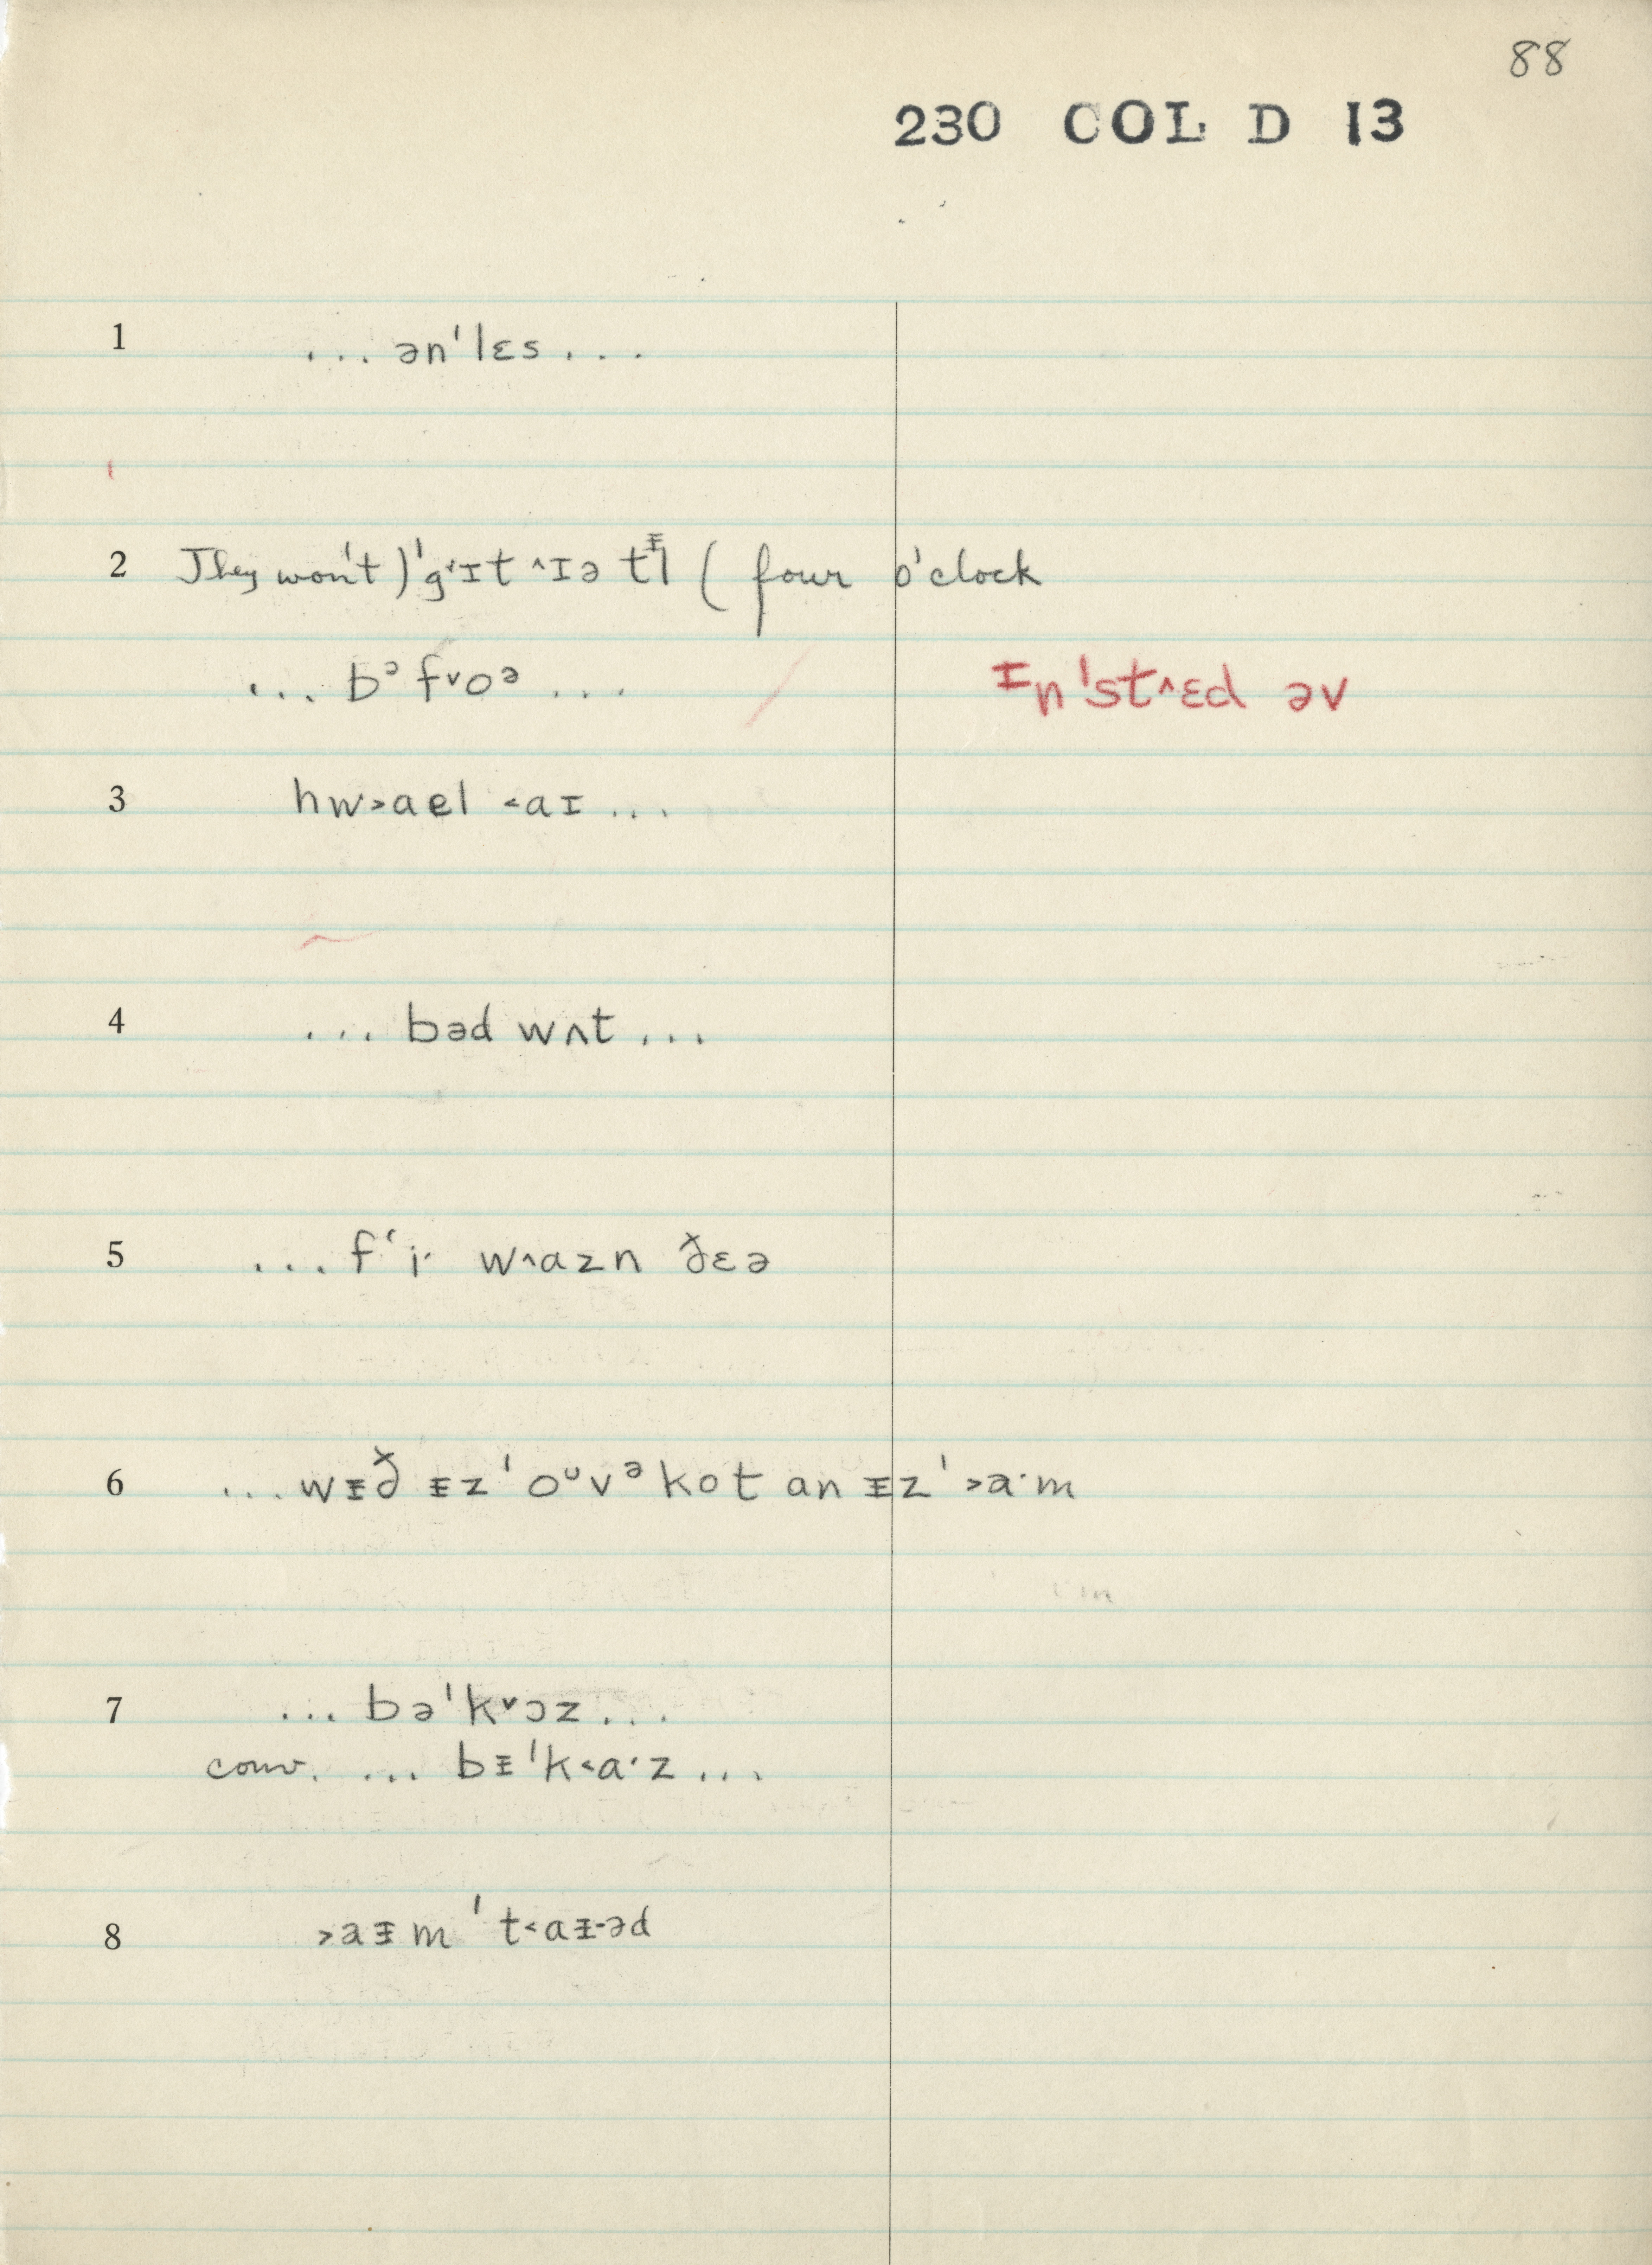 88
230 COL D 13
1 ... ən'lɛs ...
2 They won't) 'g˂ɪt ˄ɪə tᵻl ( four o'clock
... bᵊf˅oᵊ ... ɪn'st˄ɛd əv
3 hw˃ael ˂aɪ ...
4 ... bəd wʌt ...
5 ... f'i· w˄azn ðɛə
6 ... wᵻð ᵻz 'oᵘvᵊkot an ᵻz '˃a·m
7 ... bə'k˅ɔz ...
conv. ... bᵻ'k˂a·z ...
8 ˃aᵻm 't˂aᵻ-əd